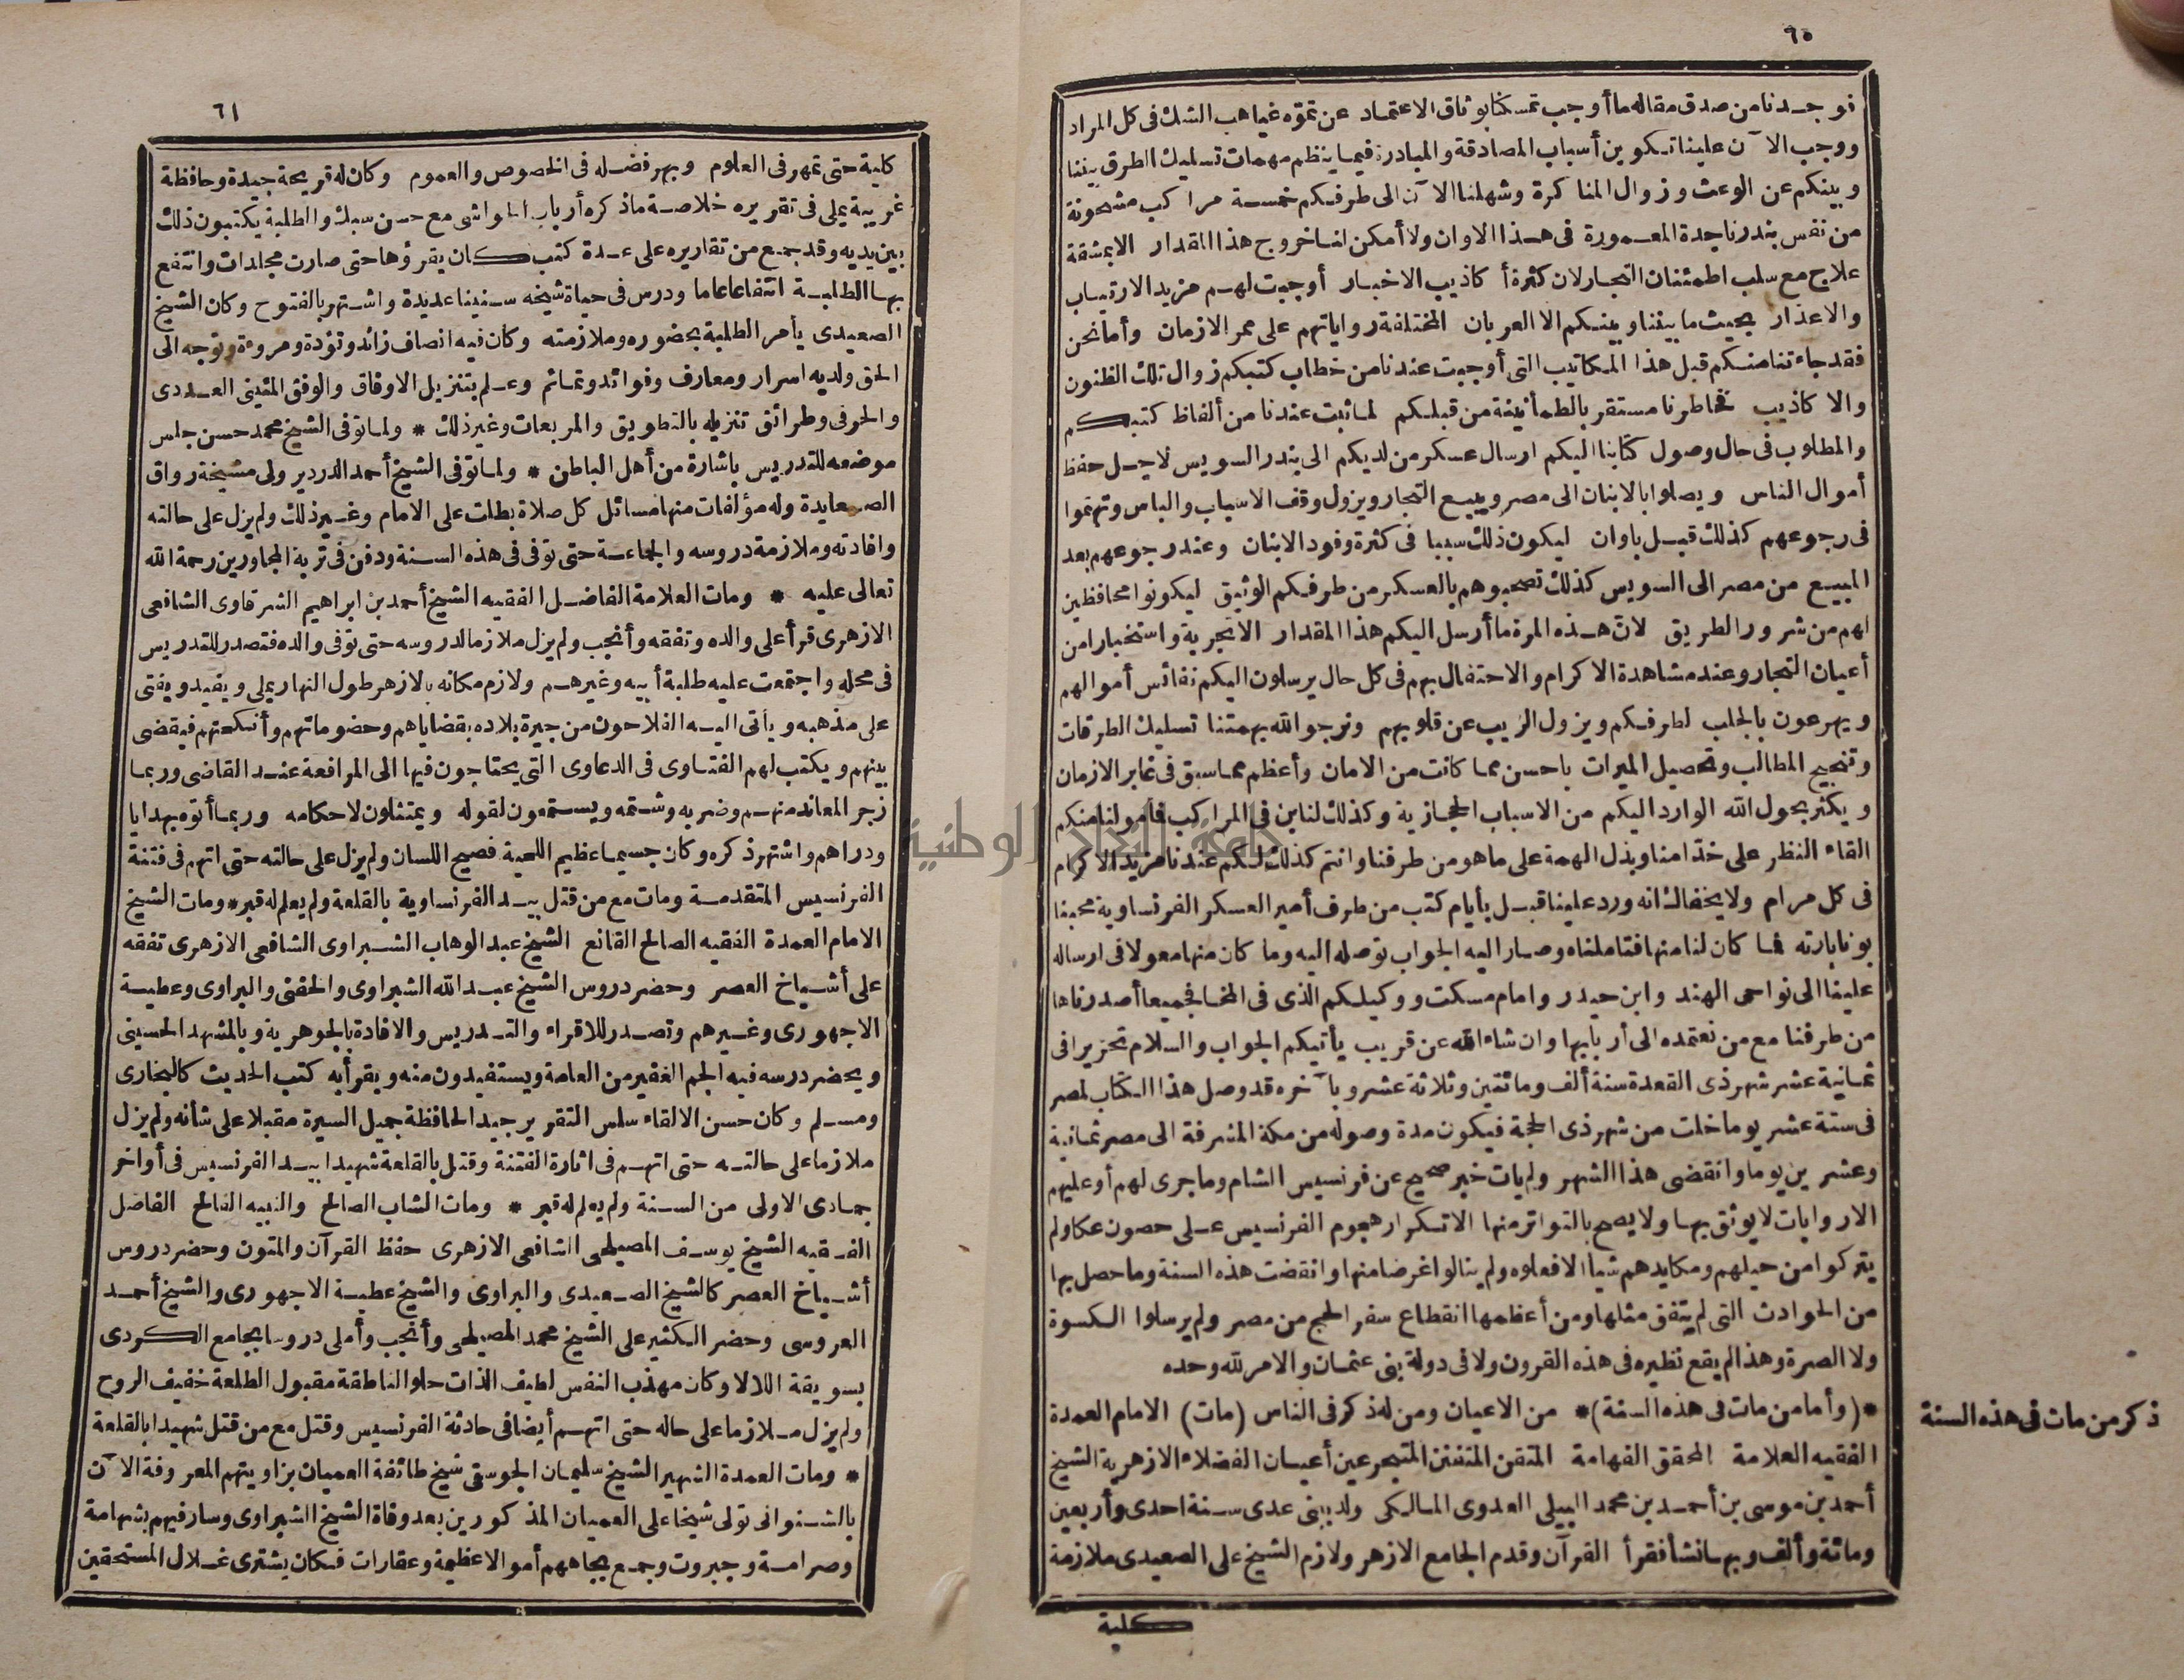 ٦٠
فوجدنا من صدق مقاله ما أوجب تمسكنا بوثاق الاعتماد عن تموّه غياهب الشك فى كل المراد
ووجب الآن علينا تكوين أسباب المصادقة والمبادرة فيما ينظم مهمات تسليك الطرق بيننا
وبينكم عن الوعث وزوال المناكرة وشهلنا الآن الى طرفكم خمسة مراكب مشحونة
من نفس بندرنا جدة المعمورة فى هذا الاوان ولا أمكن لنا خروج هذا المقدار الا بمشقة
علاج مع سلب اطمئنان التجار لان كثرة أكاذيب الاخبار أوجبت لهم مزيد الارتياب
والاعذار بحيث ما بيننا وبينكم الا العربان المختلفة رواياتهم على ممر الازمان وأما نحن
فقد جاءتنا منكم قبل هذا المكاتيب التى أوجبت عندنا من خطاب كتبكم زوال تلك الظنون
والا كاذيب فخاطرنا مستقر بالطمأنينة من قبلكم لما ثبت عندنا من ألفاظ كتبكم
والمطلوب فى حال وصول كتابنا اليكم ارسال عسكر من لديكم الى بندر السويس لاجل حفظ
أموال الناس ويصلوا بالابنان الى مصر ويبيع التجار ويزول وقف الاسباب والباس وتهتموا
فى رجوعهم كذلك قبل باوان ليكون ذلك سببا فى كثرة وفود الابنان وعند رجوعهم بعد
المبيع من مصر الى السويس كذلك تصحبوهم بالعسكر من طرفكم الوثيق ليكونوا محافظين
لهم من شرور الطريق لان هذه المرة ما أرسل اليكم هذا المقدار الا تجربة واستخبارا من
أعيان التجار وعند مشاهدة الاكرام والاحتفال بهم فى كل حال يرسلون اليكم نفائس أموالهم
ويهرعون بالجلب لطرفكم ويزول الريب عن قلوبهم ونرجو الله بهمتنا تسليك الطرقات
وتنجيح المطالب وتحصيل الميرات باحسن مما كانت من الامان وأعظم مما سبق فى غابر الازمان
ويكثر بحول الله الوارد اليكم من الاسباب الحجازية وكذلك لنا بن فى المراكب فأمولنا منكم
القاء النظر على خدامنا وبذل الهمة على ما هو من طرفنا وانتم كذلك لكم عندنا مزيد الاكرام
فى كل مرام ولا يخفاك انه ورد علينا قبل بأيام كتب من طرف أمير العسكر الفرنساوية محبنا
بونابارته فما كان لنا منها فتاملناه وصار اليه الجواب توصله اليه وما كان منها معولا فى ارساله
علينا الى نواحى الهند وابن حيدر وامام مسكت ووكيلكم الذى فى المخا فجميعا أصدرناها
من طرفنا مع من نعتمده الى أربابها وان شاء الله عن قريب يأتيكم الجواب والسلام تحريرا فى
ثمانية عشر شهر ذى القعدة سنة ألف ومائتين وثلاثة عشر وبآخره قد وصل هذا الكتاب لمصر
فى ستة عشر يوما خلت من شهر ذى الحجة فيكون مدة وصوله من مكة المشرفة الى مصر ثمانية
وعشرين يوما وانقضى هذا الشهر ولم يات خبر صحيح عن فرنسيس الشام وما جرى لهم أو عليهم
الا روايات لا يوثق بها ولا يصح بالتواتر منها الا تكرار هجوم الفرنسيس على حصون عكا ولم
يتركوا من حيلهم ومكايدهم شيأ الا فعلوه ولم ينالوا غرضا منها وانقضت هذه السنة وما حصل بها
من الحوادث التى لم يتفق مثلها ومن أعظمها انقطاع سفر الحج من مصر ولم يرسلوا الكسوة
ولا الصرة وهذا لم يقع نظيره فى هذه القرون ولا فى دولة بنى عثمان والامر لله وحده
ذكر من مات فى هذه السنة
*(وأما من مات فى هذه السنة)* من الاعيان ومن له ذكر فى الناس (مات) الامام العمدة
الفقيه العلامة المحقق الفهامة المتقن المتفنن المتبحر عين أعيان الفضلاء الازهرية الشيخ
أحمد بن موسى بن أحمد بن محمد البيلى العدوى المالكى ولد ببنى عدى سنة احدى وأربعين
ومائة وألف وبها نشأ فقرأ القرآن وقدم الجامع الازهر ولازم الشيخ على الصعيدى ملازمة
كلية
٦١
كلية حتى تمهر فى العلوم وبهر فضله فى الخصوص والعموم وكان له قريحة جيدة وحافظة
غريبة يملى فى تقريره خلاصة ما ذكره أرباب الحواشى مع حسن سبك والطلبة يكتبون ذلك
بين يديه وقد جمع من تقاريره على عدة كتب كان يقرؤها حتى صارت مجلدات وانتفع
بها الطلبة انتفاعا عاما ودرس فى حياة شيخه سنينا عديدة واشتهر بالفتوح وكان الشيخ
الصعيدى يأمر الطلبة بحضوره وملازمته وكان فيه انصاف زائد وتؤدة ومروءة وتوجه الى
الحق ولديه اسرار ومعارف وفوائد وتمائم وعلم بتنزيل الاوفاق والوفق المئينى العددى
والحرفى وطرائق تنزيله بالتطويق والمربعات وغير ذلك * ولما توفى الشيخ محمد حسن جلس
موضعه للتدريس باشارة من أهل الباطن * ولما توفى الشيخ أحمد الدردير ولى مشيخة رواق
الصعايدة وله مؤلفات منها مسائل كل صلاة بطلت على الامام وغير ذلك ولم يزل على حالته
وافادته وملازمة دروسه والجماعة حتى توفى فى هذه السنة ودفن فى تربة المجاورين رحمة الله
تعالى عليه * ومات العلامة الفاضل الفقيه الشيخ أحمد بن ابراهيم الشرقاوى الشافعى
الازهرى قرأ على والده وتفقه وأنجب ولم يزل ملازما لدروسه حتى توفى والده فتصدر للتدريس
فى محله واجتمعت عليه طلبة أبيه وغيرهم ولازم مكانه بالازهر طول النهار يملى ويفيد ويفتى
على مذهبه ويأتى اليه الفلاحون من جيرة بلاده بقضاياهم وخصوماتهم وأنكحتهم فيقضى
بينهم ويكتب لهم الفتاوى فى الدعاوى التى يحتاجون فيها الى المرافعة عند القاضى وربما
زجر المعاند منهم وضربه وشتمه ويستمعون لقوله ويمتثلون لاحكامه وربما أتوه بهدايا
ودراهم واشتهر ذكره وكان جسيما عظيم اللحية فصيح اللسان ولم يزل على حالته حتى اتهم فى فتنة
الفرنسيس المتقدمة ومات مع من قتل بيد الفرنساوية بالقلعة ولم يعلم له قبر * ومات الشيخ
الامام العمدة الفقيه الصالح القانع الشيخ عبد الوهاب الشبراوى الشافعى الازهرى تفقه
على أشياخ العصر وحضر دروس الشيخ عبد الله الشبراوى والحفنى والبراوى وعطية
الاجهورى وغيرهم وتصدر للاقراء والتدريس والافادة بالجوهرية وبالمشهد الحسينى
ويحضر درسه فيه الجم الغفير من العامة ويستفيدون منه ويقرأ به كتب الحديث كالبخارى
ومسلم وكان حسن الالقاء سلس التقرير جيد الحافظة جميل السيرة مقبلا على شأنه ولم يزل
ملازما على حالته حتى اتهم فى اثارة الفتنة وقتل بالقلعة شهيدا بيد الفرنسيس فى أواخر
جمادى الاولى من السنة ولم يعلم له قبر * ومات الشاب الصالح والنبيه الفالح الفاضل
الفقيه الشيخ يوسف المصيلحى الشافعى الازهرى حفظ القرآن والمتون وحضر دروس
أشياخ العصر كالشيخ الصعيدى والبراوى والشيخ عطية الاجهورى والشيخ أحمد
العروسى وحضر الكثير على الشيخ محمد المصيلحى وأنجب وأملى دروسا بجامع الكردى
بسويقة اللالا وكان مهذب النفس لطيف الذات حلو الناطقة مقبول الطلعة خفيف الروح
ولم يزل ملازما على حاله حتى اتهم أيضا فى حادثة الفرنسيس وقتل مع من قتل شهيدا بالقلعة
* ومات العمدة الشهير الشيخ سليمان الجوسقى شيخ طائفة العميان بزاويتهم المعروفة الآن
بالشنوانى تولى شيخا على العميان المذكورين بعد وفاة الشيخ الشبراوى وسار فيهم بشهامة
وصرامة وجبروت وجمع بجاههم أموالا عظيمة وعقارات فكان يشترى غلال المستحقين